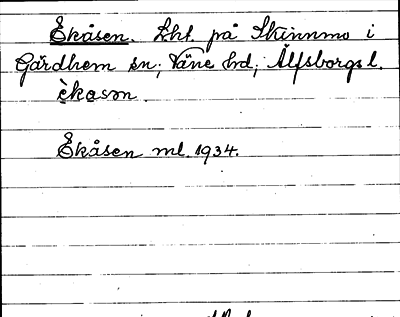 Ekåsen. Lht. på Skinnmo i
Gärdhem sn; Väne hd; Älfsborgs l.
èkɑsən.
Ekåsen ml. 1934.